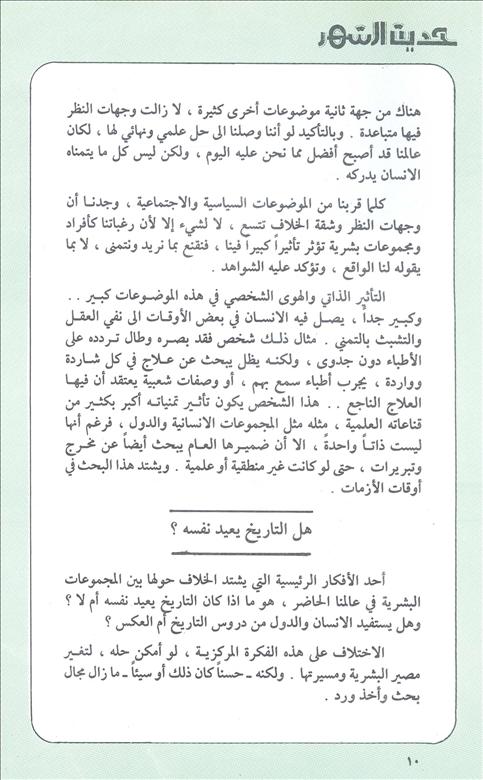 حديث الشهر
هناك من جهة ثانية موضوعات أخرى كثيرة ، لا زالت وجهات النظر
فيها متباعدة . وبالتأكيد لو أننا وصلنا الى حل علمي ونهائي لها ، لكان
عالمنا قد أصبح أفضل مما نحن عليه اليوم ، ولكن ليس كل ما يتمناه
الانسان يدركه .
كلما قربنا من الموضوعات السياسية والاجتماعية ، وجدنا أن
وجهات النظر وشقة الخلاف تتسع ، لا لشيء إلا لأن رغباتنا كأفراد
ومجموعات بشرية تؤثر تأثيراً كبيراً فينا ، فنقنع بما نريد ونتمنى ، لا بما
يقوله لنا الواقع ، وتؤكد عليه الشواهد .
التأثير الذاتي والهوى الشخصي في هذه الموضوعات كبير . .
وكبير جداً ، يصل فيه الانسان في بعض الأوقات الى نفي العقل
والتشبث بالتمني . مثال ذلك شخص فقد بصره وطال تردده على
الأطباء دون جدوى ، ولكنه يظل يبحث عن علاج في كل شاردة
وواردة ، يجرب أطباء سمع بهم ، أو وصفات شعبية يعتقد أن فيها
العلاج الناجع . . هذا الشخص يكون تأثير تمنياته أكبر بكثير من
قناعاته العلمية ، مثله مثل المجموعات الانسانية والدول ، فرغم أنها
ليست ذاتاً واحدةً ، الا أن ضميرها العام يبحث أيضاً عن مخرج
وتبريرات ، حتى لو كانت غير منطقية أو علمية . ويشتد هذا البحث في
أوقات الأزمات .
هل التاريخ يعيد نفسه ؟
أحد الأفكار الرئيسية التي يشتد الخلاف حولها بين المجموعات
البشرية في عالمنا الحاضر ، هو ما اذا كان التاريخ يعيد نفسه أم لا ؟
وهل يستفيد الانسان والدول من دروس التاريخ أم العكس ؟
الاختلاف على هذه الفكرة المركزية ، لو أمكن حله ، لتغير
مصير البشرية ومسيرتها . ولكنه ـ حسناً كان ذلك أو سيئاً ـ ما زال مجال
بحث وأخذ ورد .
١٠